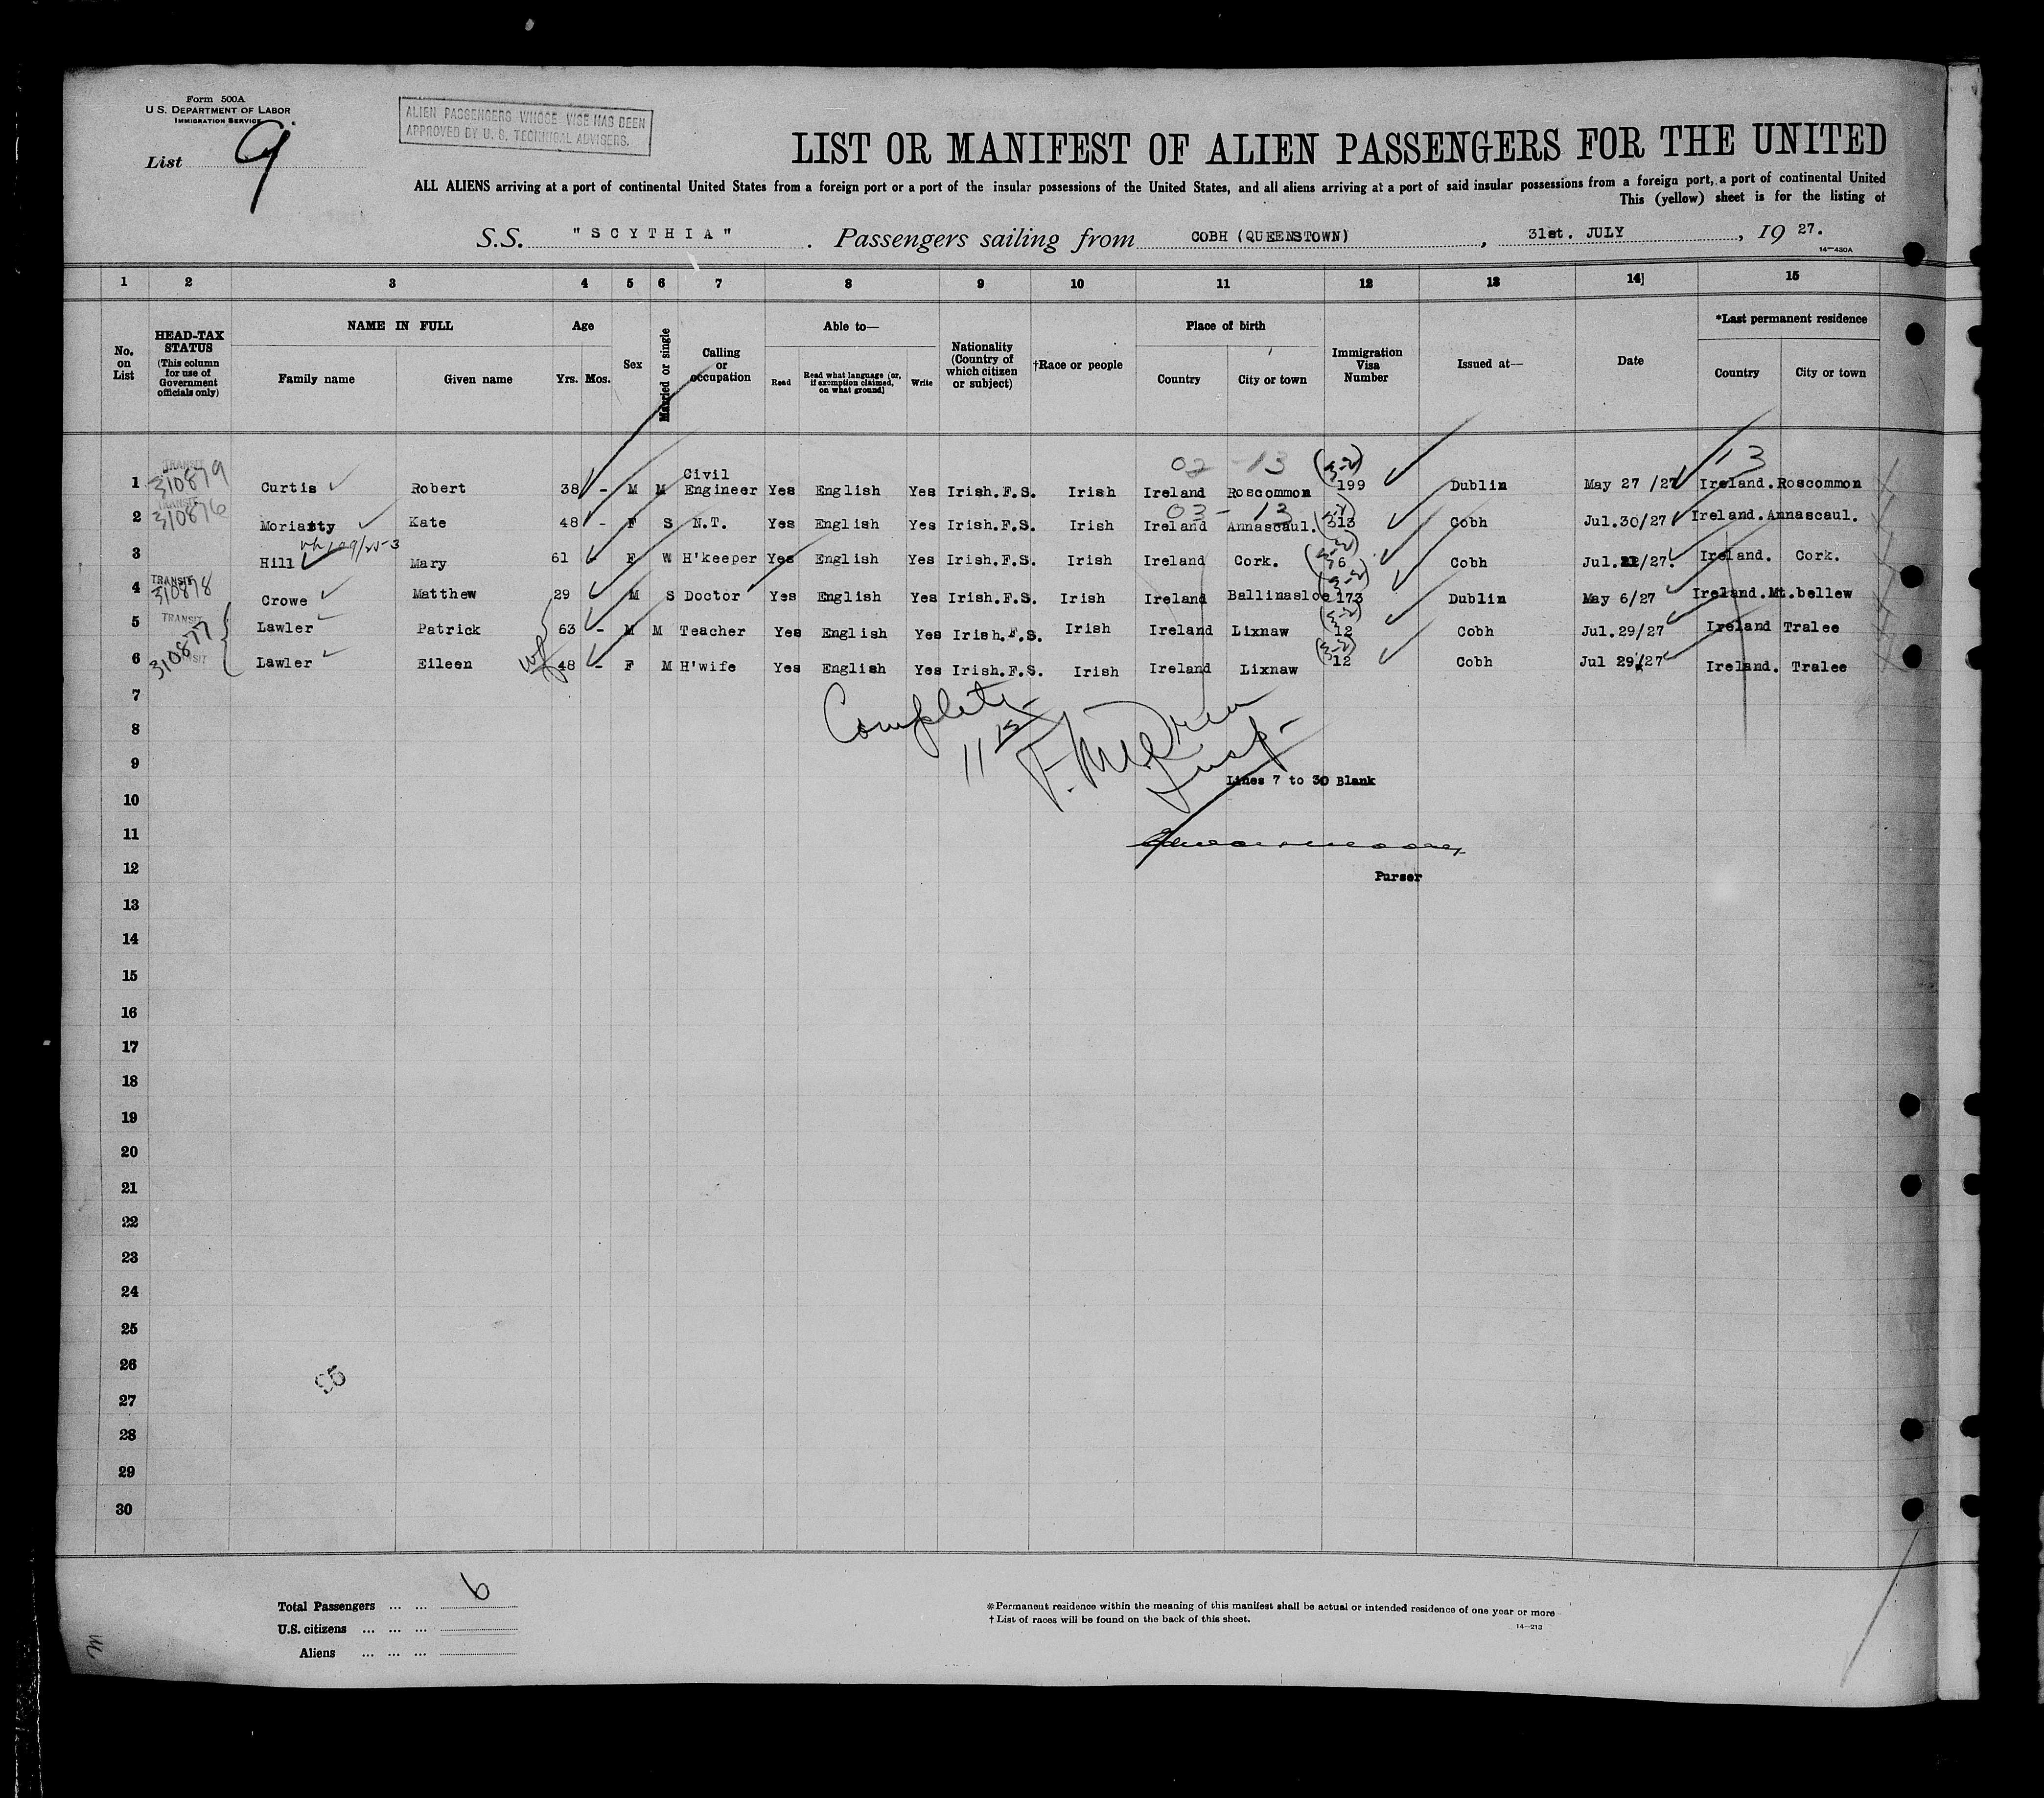 Form 500A
U.S. DEPARTMENT OF LABOR
IMMIGRATION SERVICE
List 9
ALIEN PASSENGERS WHOSE VISE HAS BEEN
APPROVED BY U. S. TECHNICAL ADVISERS.
LIST OR MANIFEST OF ALIEN PASSENGERS FOR THE UNITED
ALL ALIENS arriving at a port of continental United States from a foreign port or a port of the insular possessions of the United States, and all aliens arriving at a port of said insular possessions from a foreign port, a port of continental United
This (yellow) sheet is for the listing of
S.S. "SCYTHIA". Passengers sailing from COBH (QUEENSTOWN), 31st. JULY, 19 27.
14—430A
1 2 3 4 5 6 7 8 9 10 11 12 13 14 15
No. on List
HEAD-TAX STATUS (This column for use of Government officials only)
NAME IN FULL
Family name Given name
Age
Yrs. Mos.
Sex
Married or single
Calling or occupation
Able to—
Read Read what language (or, if exemption claimed, on what ground) Write
Nationality (Country of which citizen or subject)
†Race or people
Place of birth
Country City or town
Immigration Visa Number
Issued at—
Date
*Last permanent residence
Country City or town
02 - 13 13
1 TRANSIT 310879 Curtis Robert 38 - M M Civil Engineer Yes English Yes Irish.F.S. Irish Ireland Roscommon (3-2) 199 Dublin May 27 /27 Ireland. Roscommon
03 - 13
2 TRANSIT 310876 Moriarty Kate 48 - F S N.T. Yes English Yes Irish.F.S. Irish Ireland Annascaul. 313 Cobh Jul.30/27 Ireland. Annascaul.
3 Hill Mary 61 - F W H'keeper Yes English Yes Irish.F.S. Irish Ireland Cork. (3-2) 6 Cobh Jul. /27. Ireland. Cork.
4 TRANSIT 310878 Crowe Matthew 29 M S Doctor Yes English Yes Irish.F.S. Irish Ireland Ballinasloe (3-2) 173 Dublin May 6/27 Ireland. Mt.bellew
5 TRANSIT 310877 Lawler Patrick 63 - M M Teacher Yes English Yes Irish.F.S. Irish Ireland Lixnaw (3-2) 12 Cobh Jul.29/27 Ireland Tralee
6 Lawler Eileen wf 48 - F M H'wife Yes English Yes Irish.F.S. Irish Ireland Lixnaw (3-2) 12 Cobh Jul 29/27 Ireland. Tralee
7
Complete
8
9
Insp.
Lines 7 to 30 Blank
10
11
12
Purser
13
14
15
16
17
18
19
20
21
22
23
24
25
26
95
27
28
29
30
Total Passengers ... ... 6
U.S. citizens ... ... ...
Aliens ... ... ...
*Permanent residence within the meaning of this manifest shall be actual or intended residence of one year or more
†List of races will be found on the back of this sheet.
14—213